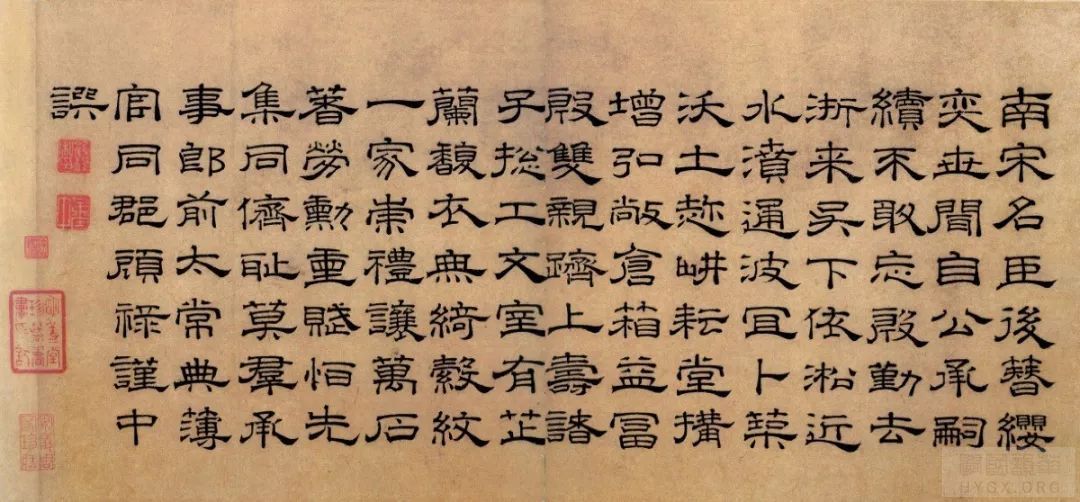 南宋名臣後簪纓
奕世聞自公承嗣
續不敢忘殷勤去
浙来吴下依淞近
水濆通波冝卜築
沃土趂畊耘堂搆
增弘敞倉箱益冨
殷雙親躋上壽諸
子捴工文室有芷
蘭馥衣無綺縠紋
一家崇禮讓萬石
著勞勳重賦怕先
集同儕耻莫羣承
事郎前太常典薄
官同郡顧祿謹中
譔
HYGX.ORG